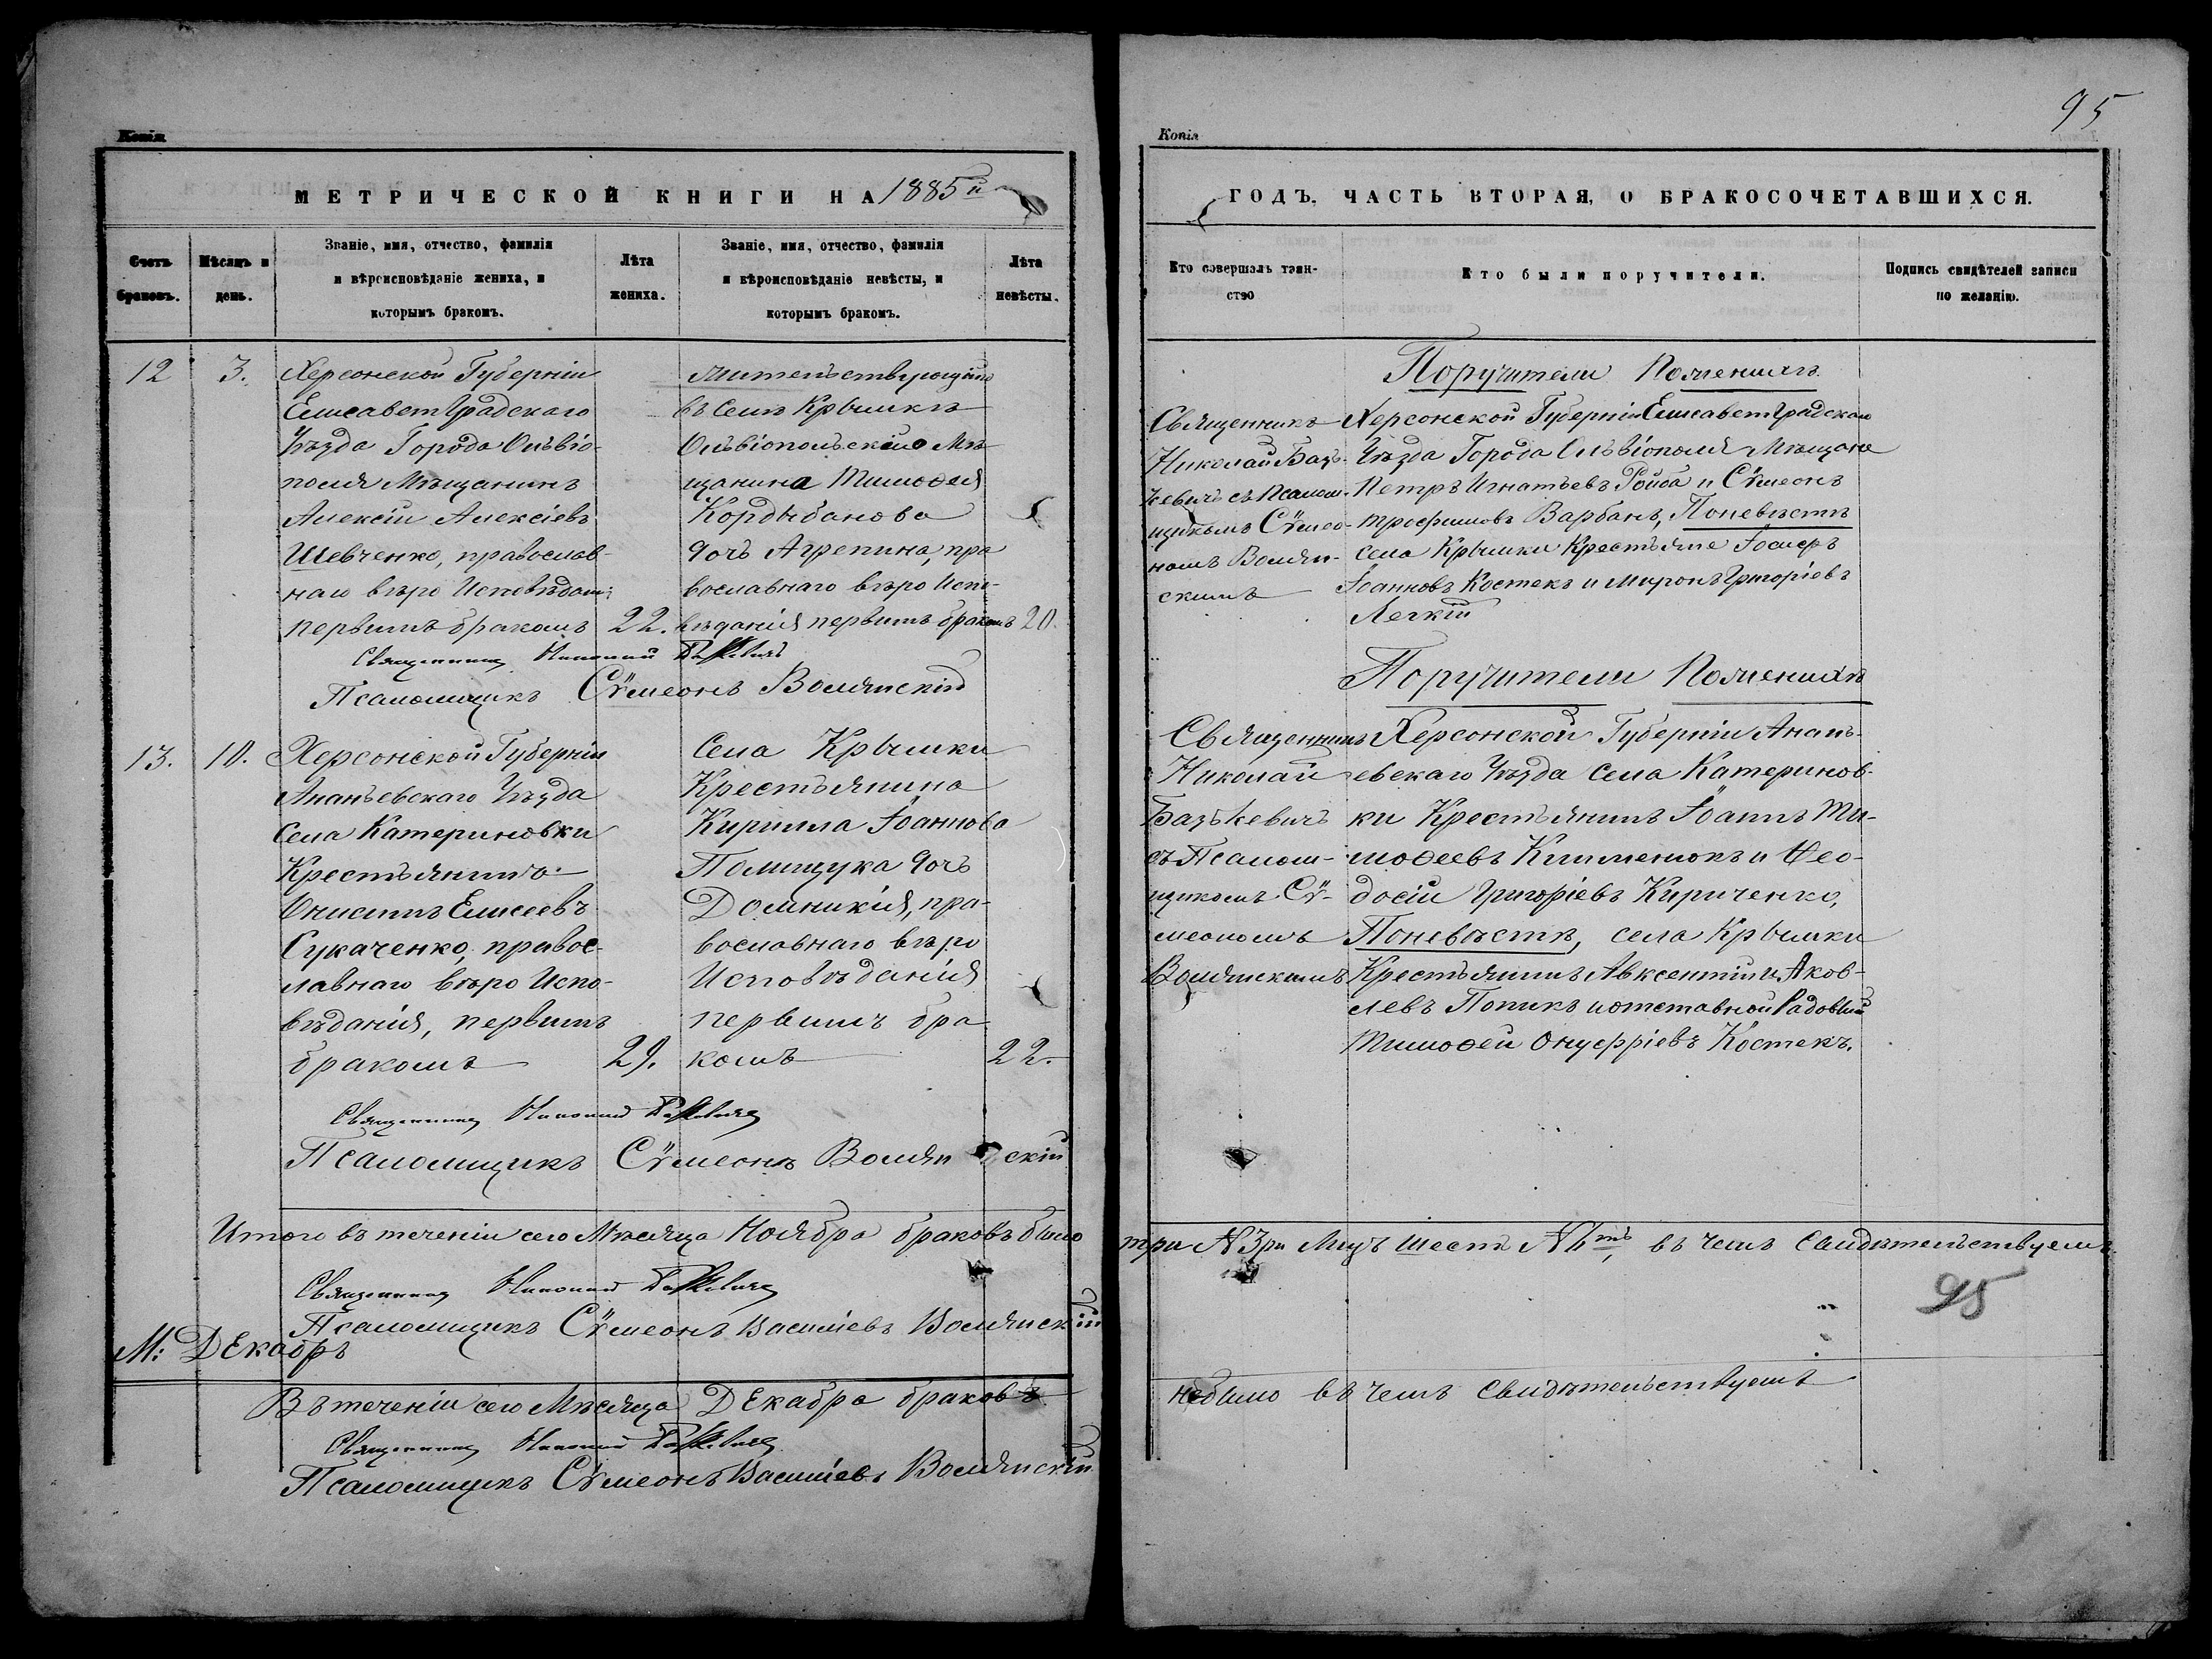 Копія
МЕТРИЧЕСКОЙ КНИГИ НА 1885й
Счетъ браковъ.
Мѣсяцъ и день.
Званіе, имя, отчество, фамилія
и вѣроисповѣданіе жениха, и
которымъ бракомъ.
Лѣта
жениха.
Званіе, имя, отчество, фамилія
и вѣроисповѣданіе невѣсты, и
которымъ бракомъ.
Лѣта
невѣсты.
12
3.
Херсонской Губерніи
Елисаветградскаго
Уѣзда Города Ольвіо-
поля Мѣщанинъ
Алексій Алексіевъ
Шевченко, православ-
наго вѣро Исповѣдан:
первымъ бракомъ
22.
жительствующій
въ селѣ Крымкѣ
Ольвіопольскаго Мѣ-
щанина Тимоѳея
Кордыбанова
дочь Агрепина, пра
вославнаго вѣро Испо-
вѣданія первымъ бракомъ
20.
Священникъ Николай Базькевичъ
Псаломщикъ Сѵмеонъ Волянскій
13.
10.
Херсонской Губерніи
Ананьевскаго Уѣзда
Села Катериновки
Крестьянинъ
Онисимъ Елисеевъ
Сукаченко, правос-
лавнаго вѣро Испо-
вѣданія, первымъ
бракомъ
29.
Села Крымки
Крестьянина
Кирилла Іоаннова
Полищука дочь
Домникія, пра-
вославнаго вѣро
Исповѣданія
первымъ бра
комъ
22.
Священникъ Николай Базькевичъ
Псаломщикъ Сѵмеонъ Волянскій
Итого въ теченіи сего Мѣсяца Ноября браковъ было
Священникъ Николай Базькевичъ
Псаломщикъ Сѵмеонъ Василіевъ Волянскій
М: Декабрь
Въ теченіи сего Мѣсяца Декабра браковъ
Священникъ Николай Базькевичъ
Псаломщикъ Сѵмеонъ Василіевъ Волянскій
95
Копія
ГОДЪ, ЧАСТЬ ВТОРАЯ, О БРАКОСОЧЕТАВШИХСЯ.
Кто совершалъ таин-
ство
Кто были поручители.
Подпись свидѣтелей записи
по желанію.
Священникъ
Николай Базь-
кевичъ съ Псалом-
щикомъ Сѵмео-
номъ Волян-
скимъ
Поручители Поженихѣ
Херсонской Губерніи Елисаветградскаго
Уѣзда Города Ольвіополя Мѣщане
Петръ Игнатьевъ Ройба и Сѵмеонъ
Трофимовъ Варбанъ, Поневѣстѣ
села Крымки Крестьяне Іосифъ
Іоанновъ Костекъ и Миронъ Григоріевъ
Легкій
Священникъ
Николай
Базькевичъ
съ Псалом-
щикомъ Сѵ-
меономъ
Волянскимъ
Поручители Поженихѣ
Херсонской Губерніи Анань-
евскаго Уѣзда Села Катеринов-
ки Крестьянинъ Іоаннъ Ти-
моѳеевъ Клименюкъ и Ѳео-
досій Григоріевъ Кириченко,
Поневѣстѣ, села Крымки
Крестьянинъ Авксентій Яков-
левъ Попикъ и отставной Рядовый
Тимоѳей Онуфріевъ Костекъ.
три № 3ри Лицъ шесть № 6ть, въ чемъ свидѣтельствуемъ
95
небыло въ чемъ свидѣтельствуемъ